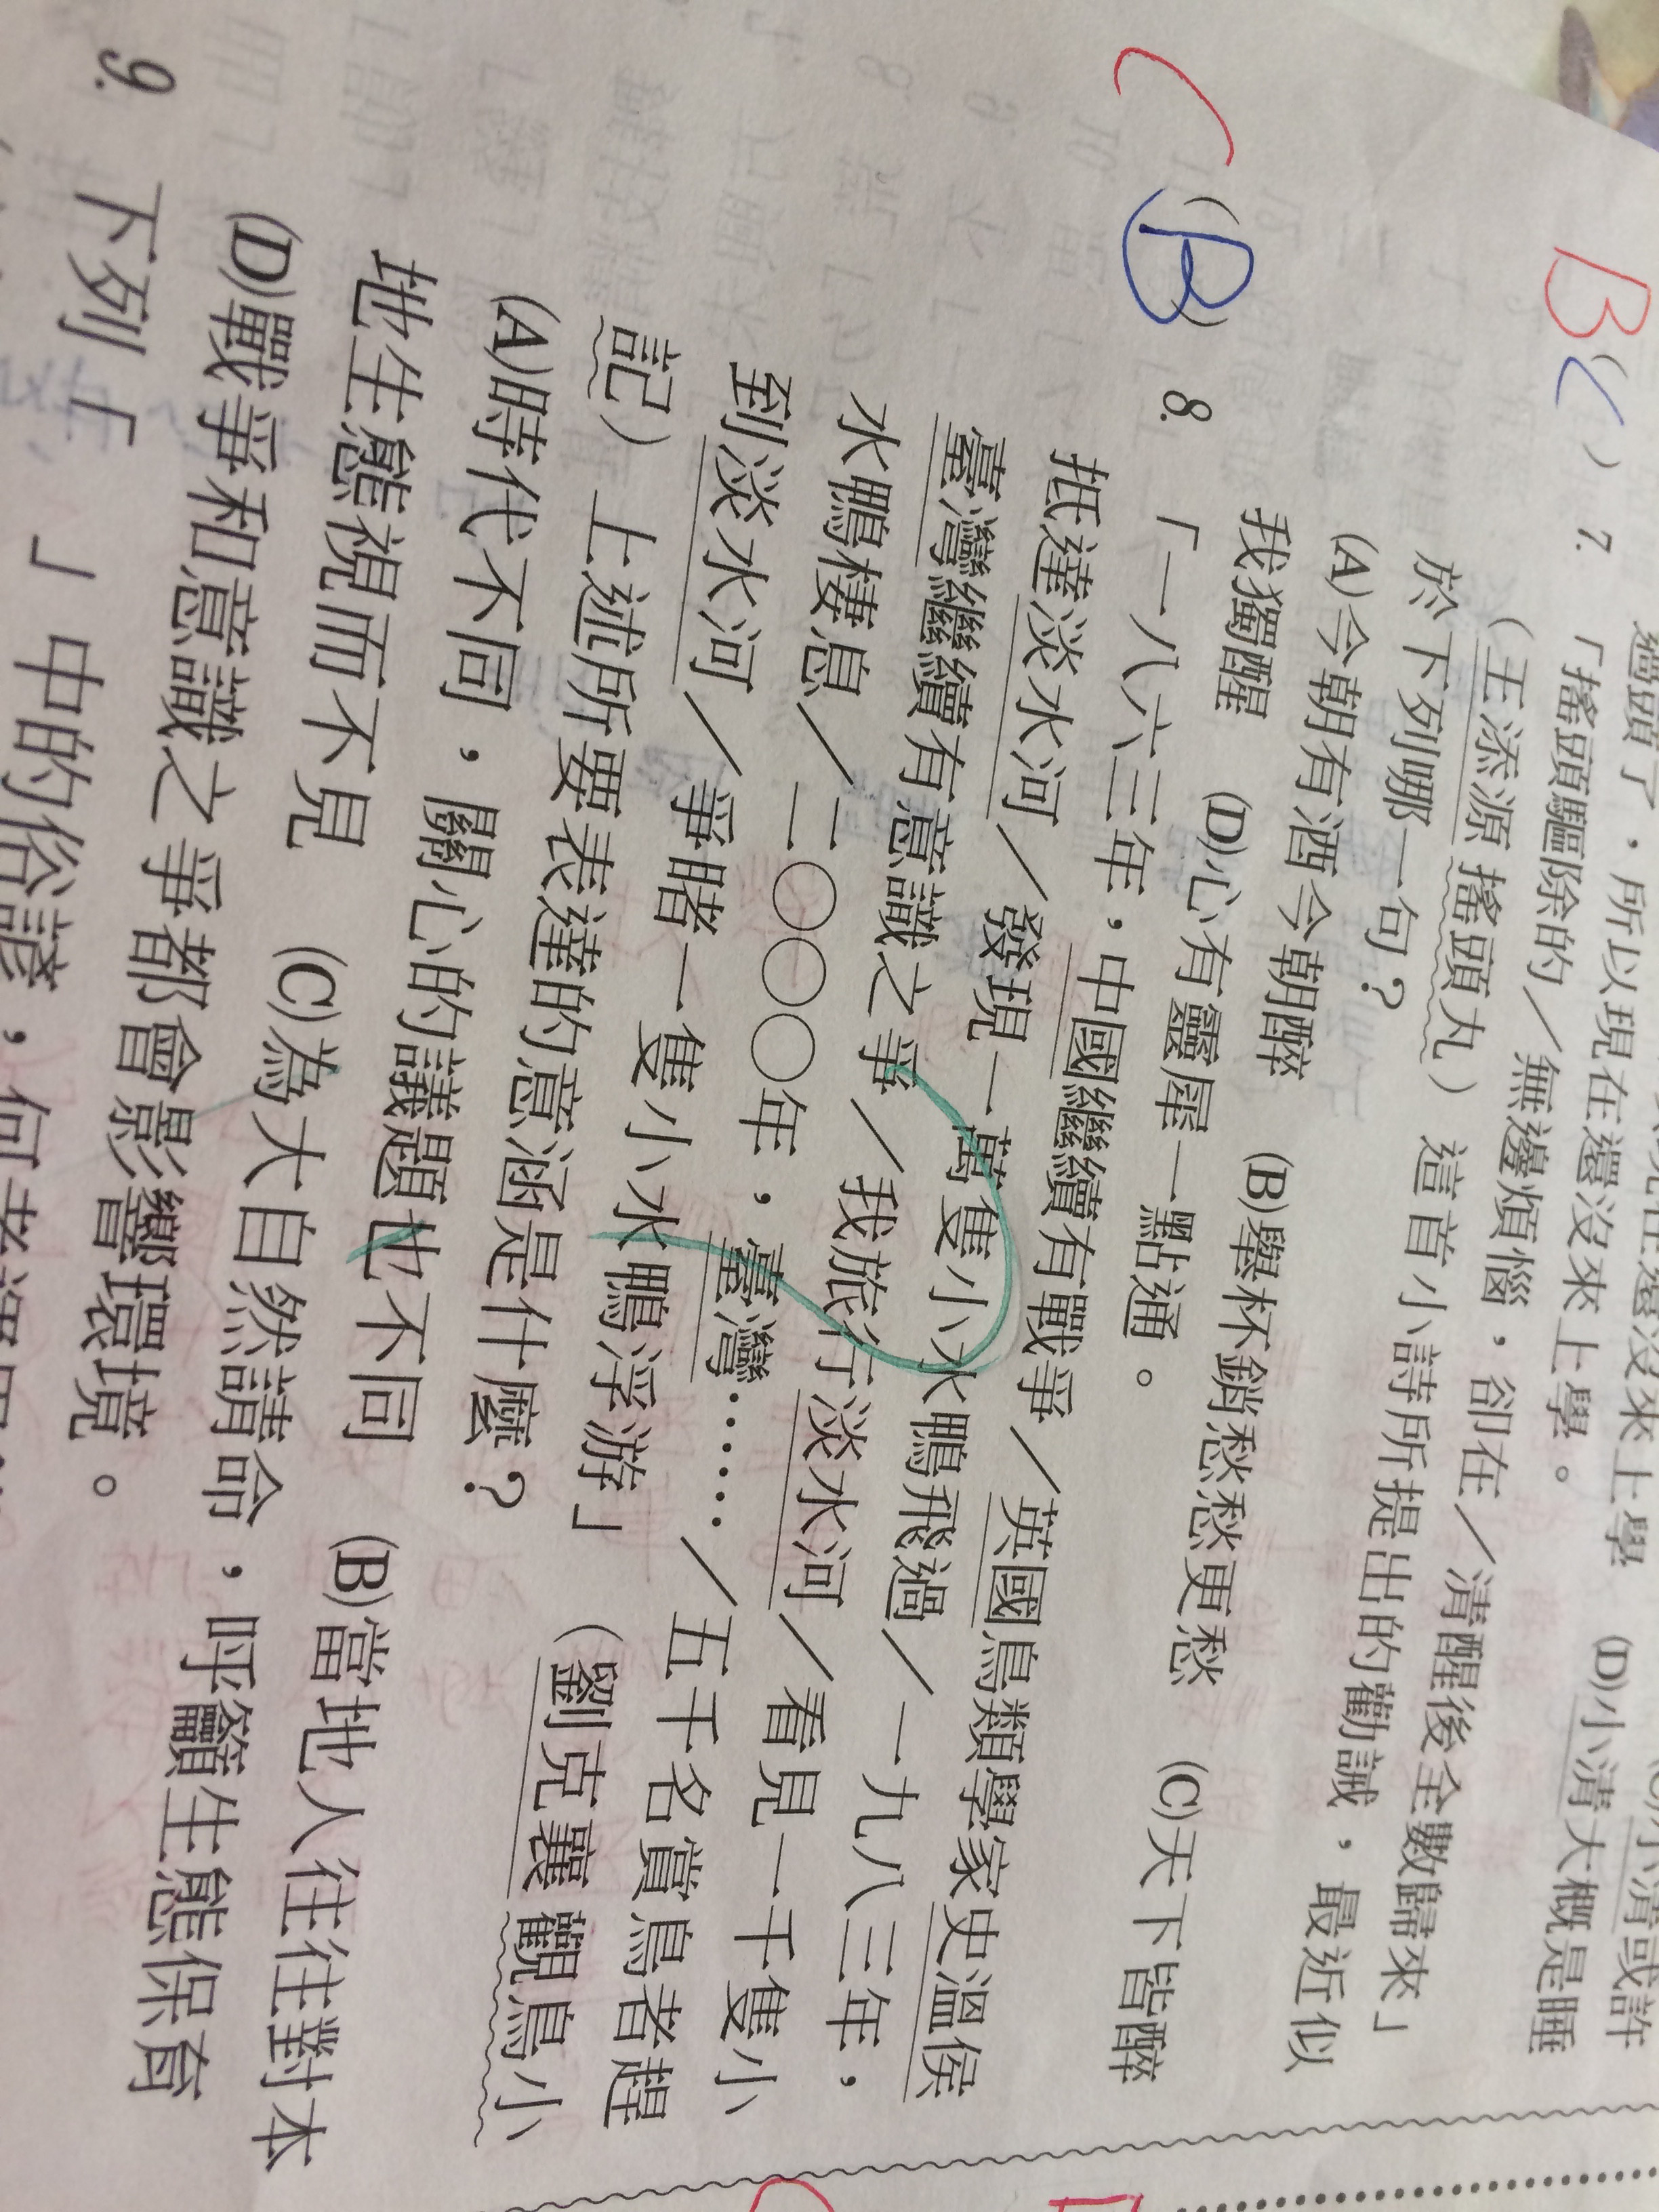 過頭了，所以現在還沒來上學
(D)小清大概是睡
B(C) 7. 「搖頭驅除的／無邊煩惱，卻在／清醒後全數歸來」
（王添源 搖頭丸）這首小詩所提出的勸誡，最近似
於下列哪一句？
(A)今朝有酒今朝醉 (B)舉杯銷愁愁更愁 (C)天下皆醉
我獨醒 (D)心有靈犀一點通。
C(B) 8. 「一八六三年，中國繼續有戰爭／英國鳥類學家史溫侯
抵達淡水河／發現一萬隻小水鴨飛過／一九八三年，
臺灣繼續有意識之爭／我旅行淡水河／看見一千隻小
水鴨棲息／二〇〇〇年，臺灣……／五千名賞鳥者趕
到淡水河／爭睹一隻小水鴨浮游」（劉克襄 觀鳥小
記）上述所要表達的意涵是什麼？
(A)時代不同，關心的議題也不同 (B)當地人往往對本
地生態視而不見 (C)為大自然請命，呼籲生態保育
(D)戰爭和意識之爭都會影響環境。
9. 下列「 」中的俗諺，何者